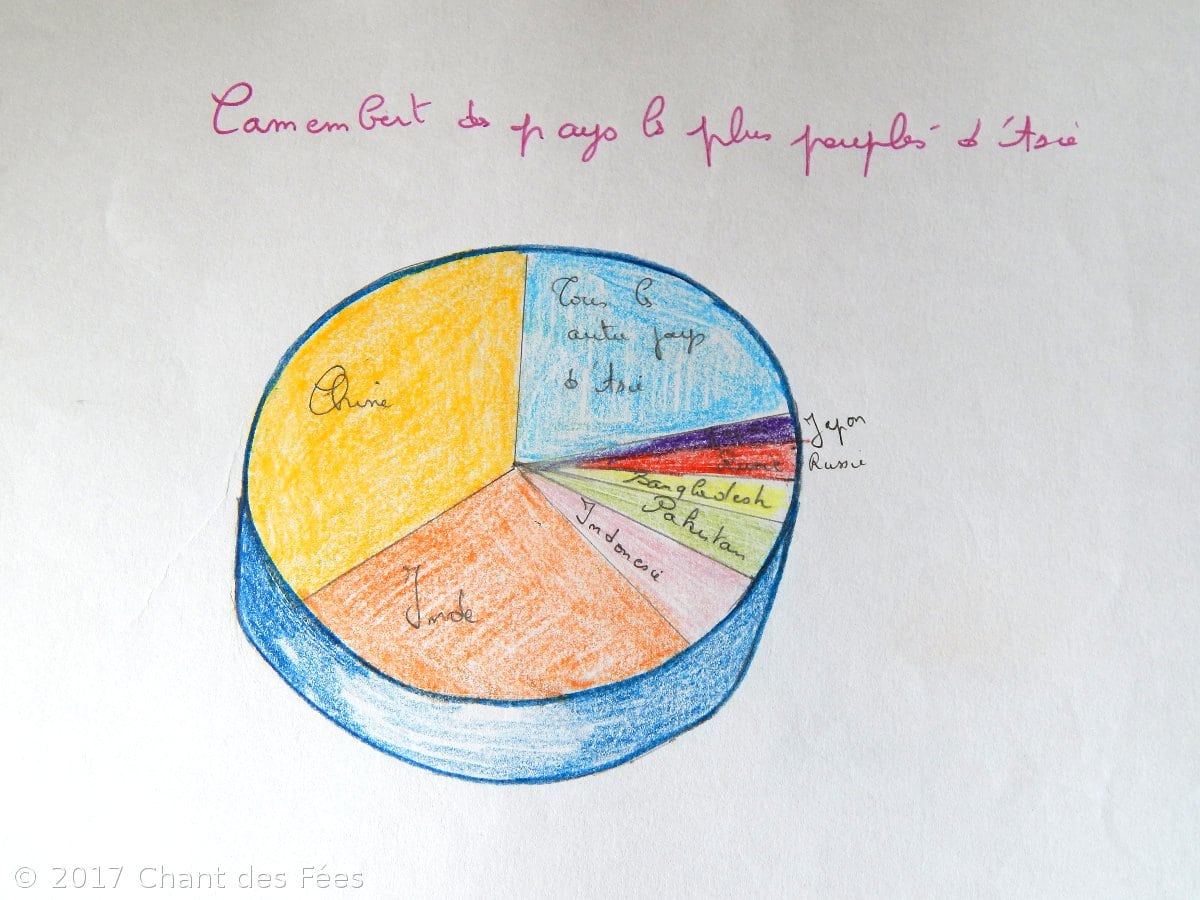 Camembert des pays les plus peuplés d'Asie
Tous les
autres pays
d'Asie
Chine
Japon
Russie
Bangladesh
Pakistan
Indonésie
Inde
© 2017 Chant des Fées